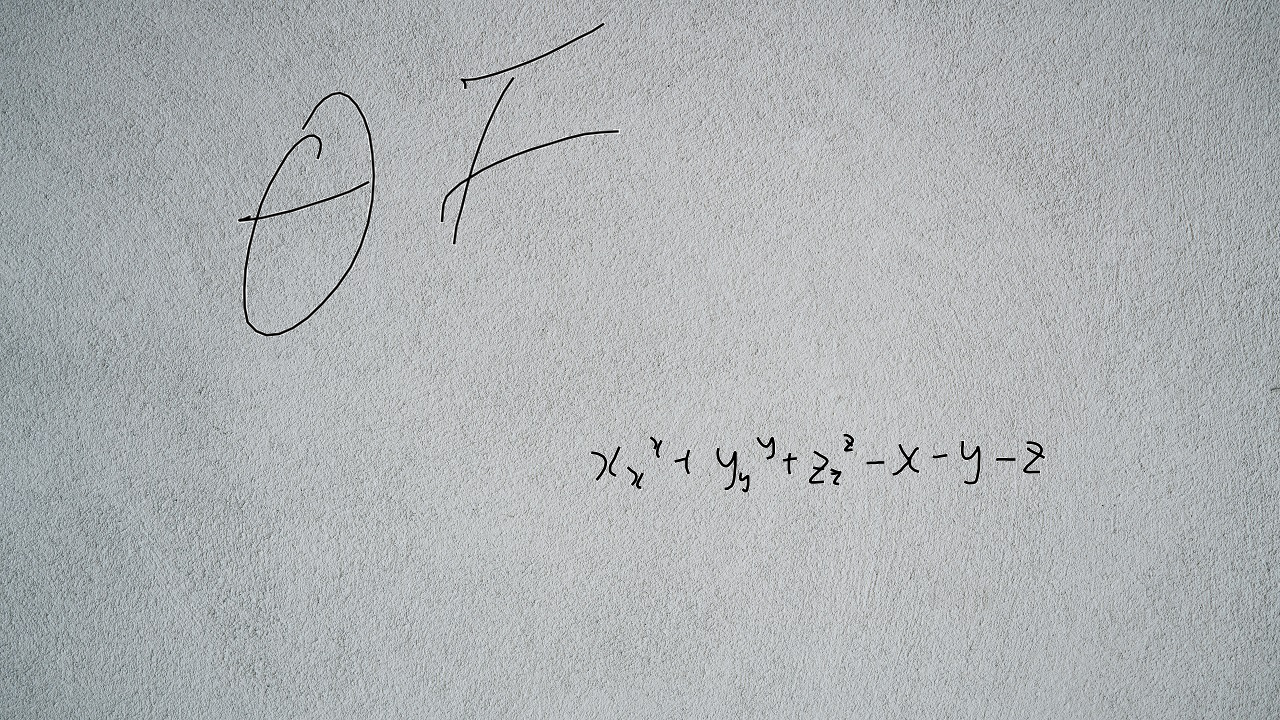 θ F
x_x^x + y_y^y + z_z^z - x - y - z